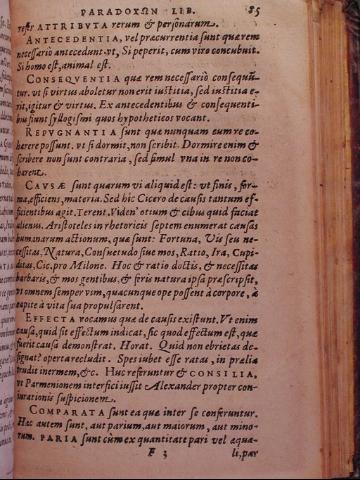 PARADOXΩN LIB. 85
refer ATTRIBVTA rerum & personarum.
ANTECEDENTIA, vel præcurrentia sunt quæ rem
necessariò antecedunt. vt, Si peperit, cum viro concubuit.
Si homo est, animal est.
CONSEQVENTIA quæ rem necessariò consequũ-
tur. vt si virtus aboletur non erit iustitia, sed iustitia e-
rit, igitur & virtus. Ex antecedentibus & consequenti-
bus fiunt syllogismi quos hypotheticos vocant.
REPVGNANTIA sunt quæ nunquam eum re co-
hærere possunt. vt si dormit, non scribit. Dormire enim &
scribere non sunt contraria, sed simul vna in re non co-
hærent.
CAVSÆ sunt quarum vi aliquid est: vt finis, for-
ma, efficiens, materia. Sed hic Cicero de causis tantum ef-
ficientibus agit. Terent. Viden' otium & cibus quid faciat
alienus. Aristoteles in rhetoricis septem enumerat causas
humanarum actionum, quæ sunt: Fortuna, Vis seu ne-
cessitas, Natura, Consuetudo siue mos, Ratio, Ira, Cupi-
ditas, Cic. pro Milone. Hoc & ratio doctis, & necessitas
barbaris, & mos gentibus, & feris natura ipsa præscripsit,
vt omnem semper vim, quacunque ope possent à corpore, à
capite à vita sua propulsarent.
EFFECTA vocamus quæ de causis existunt. Vt enim
causa, quid sit effectum indicat, sic quod effectum est, quæ
fuerit causa demonstrat. Horat. Quid non ebrietas de-
signat? operta recludit. Spes iubet esse ratas, in prælia
trudit inermem, &c. Huc referuntur & CONSILIA,
vt Parmenionem interfici iussit Alexander propter con-
iurationis suspicionem.
COMPARATA sunt ea quæ inter se conferuntur.
Hæc autem sunt, aut parium, aut maiorum, aut mino-
rum. PARIA sunt cùm ex quantitate pari vel æqua-
F 3 li, par